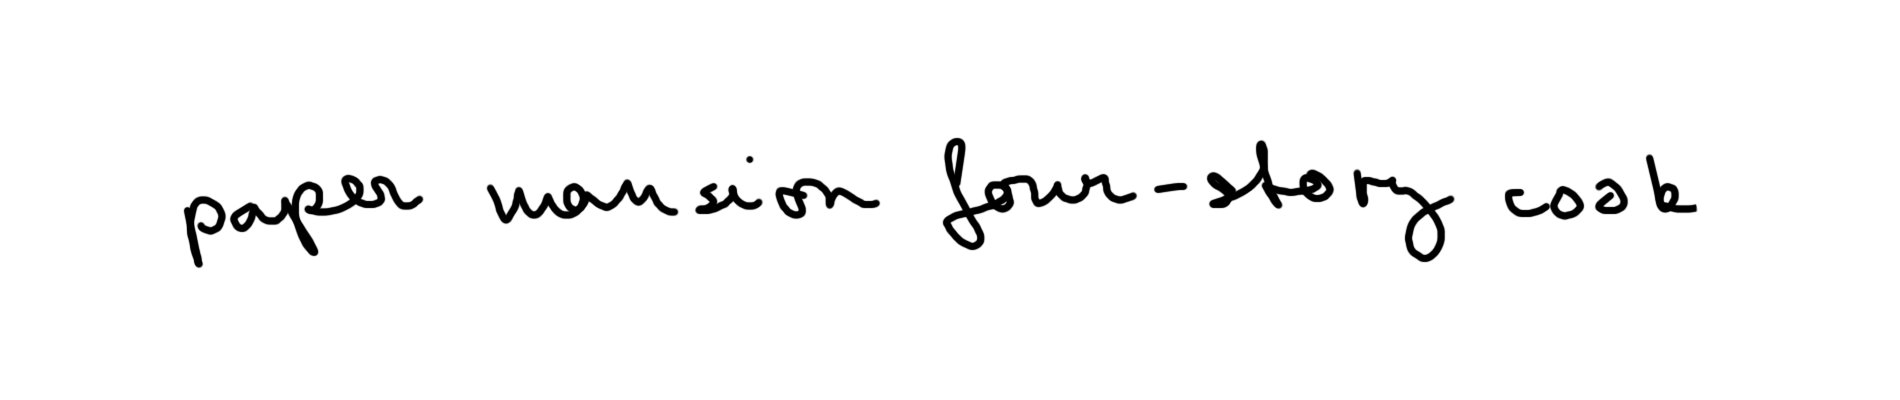 paper mansion four-story cook